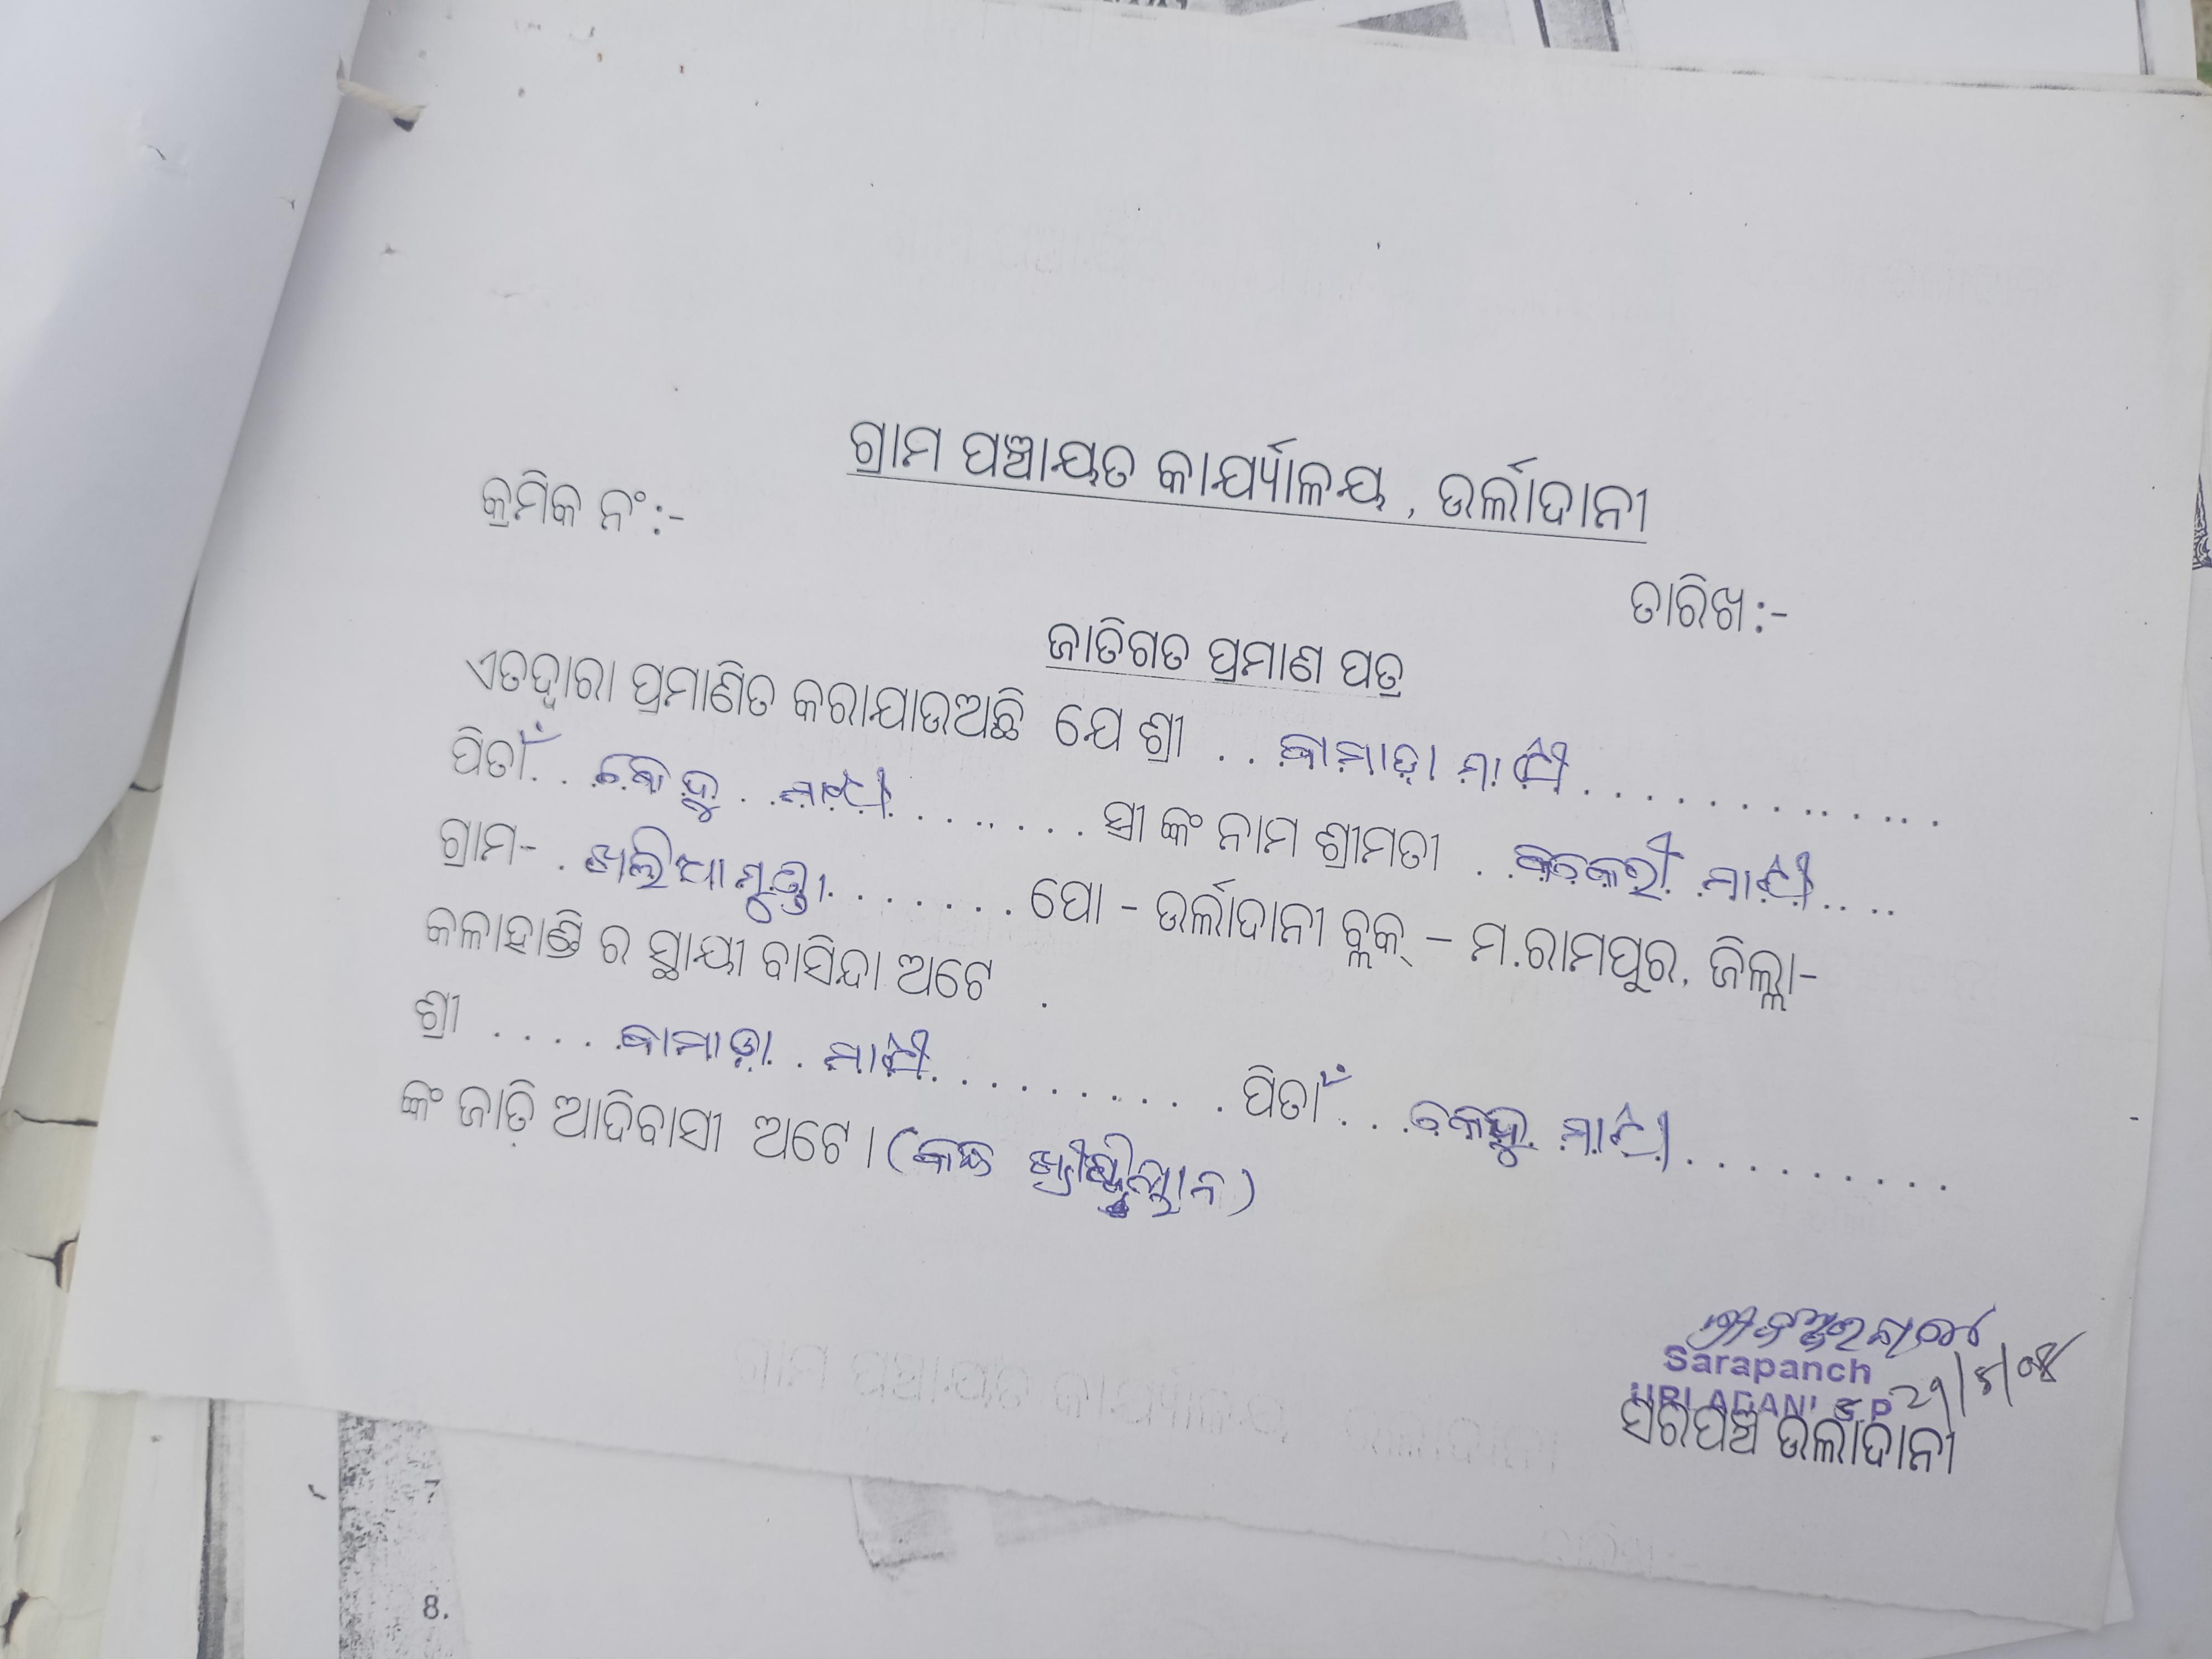 ଗ୍ରାମ ପଞ୍ଚାୟତ କାର୍ଯ୍ୟାଳୟ , ଉର୍ଲାଦାନୀ
କ୍ରମିକ ନଂ :-
ତାରିଖ :-
ଜାତିଗତ ପ୍ରମାଣ ପତ୍ର
ଏତଦ୍ୱାରା ପ୍ରମାଣିତ କରାଯାଉଅଛି ଯେ ଶ୍ରୀ . . ବାମାଡ଼ା ମାଝୀ . . . . . . . . . . . . .
ପିତାଁ . . . . ମାଝୀ . . . . . . . . ସ୍ତ୍ରୀ ଙ୍କ ନାମ ଶ୍ରୀମତୀ . . ମାଝୀ . . . .
ଗ୍ରାମ- . ଖଲିଆଗୁଡ଼ା . . . . . . . ପୋ - ଉର୍ଲାଦାନୀ ବ୍ଲକ୍ - ମ.ରାମପୁର, ଜିଲ୍ଲା-
କଳାହାଣ୍ଡି ର ସ୍ଥାୟୀ ବାସିନ୍ଦା ଅଟେ .
ଶ୍ରୀ . . . . . ବାମାଡ଼ା . ମାଝୀ . . . . . . . . . . ପିତାଁ . . . ମାଝୀ . . . . . . . . .
ଙ୍କଂ ଜାତି ଆଦିବାସୀ ଅଟେ । (କନ୍ଧ ଖ୍ରୀଷ୍ଟିୟାନ)
Sarapanch
ସରପଞ୍ଚ ଉର୍ଲାଦାନୀ
8.